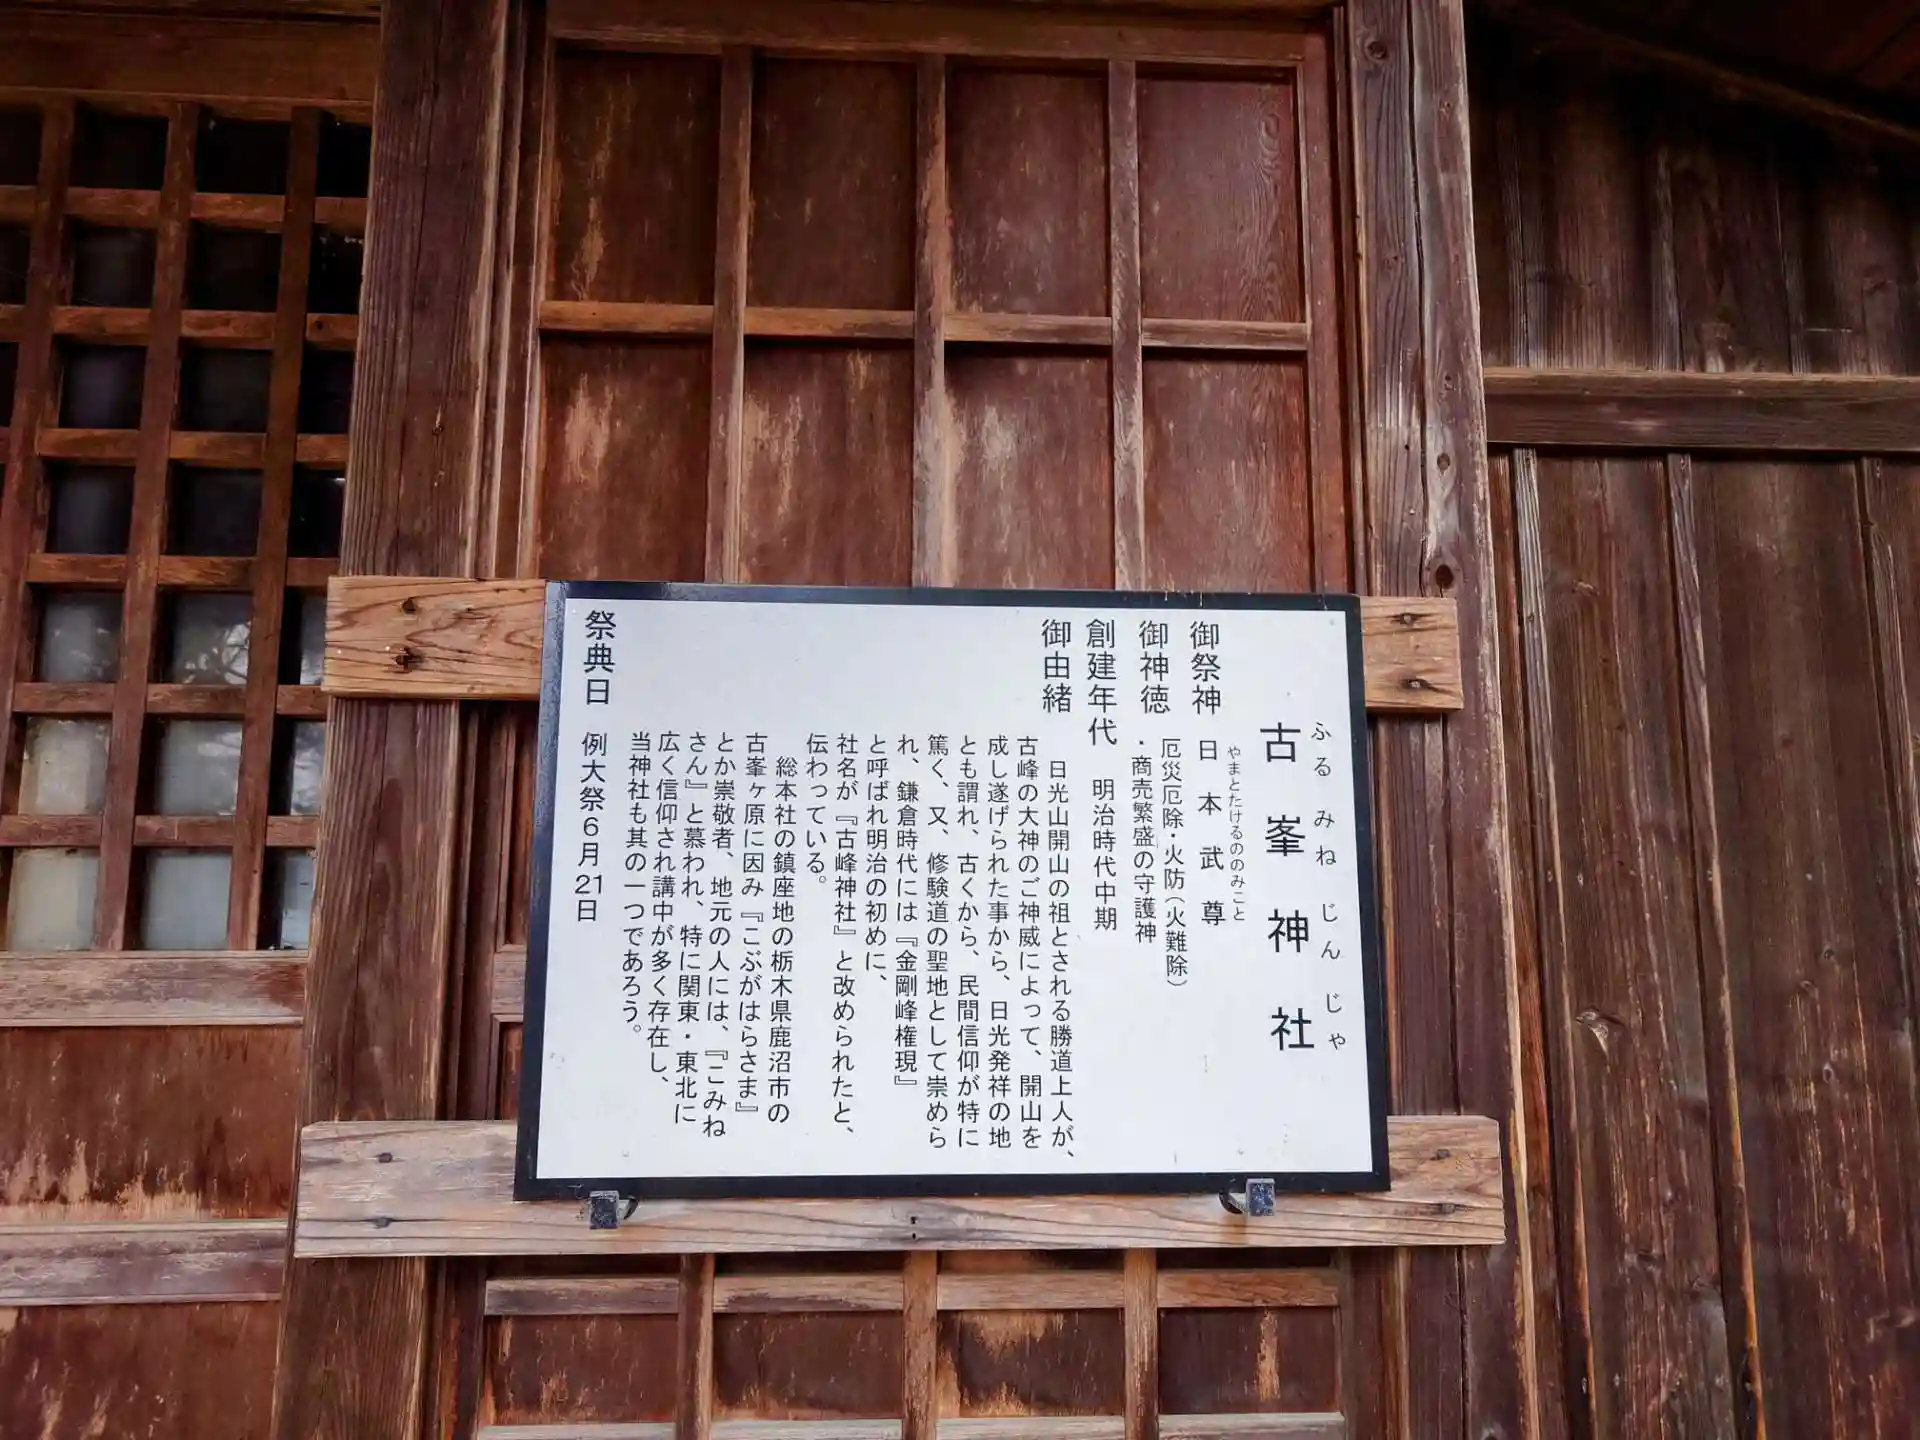 古峯神社
ふるみねじんじゃ
御祭神 日本武尊
やまとたけるののみこと
御神徳 厄災厄除・火防（火難除）
・商売繁盛の守護神
創建年代 明治時代中期
御由緒 日光山開山の祖とされる勝道上人が、
古峰の大神のご神威によって、開山を
成し遂げられた事から、日光発祥の地
とも謂れ、古くから、民間信仰が特に
篤く、又、修験道の聖地として崇めら
れ、鎌倉時代には『金剛峰権現』
と呼ばれ明治の初めに、
社名が『古峰神社』と改められたと、
伝わっている。
総本社の鎮座地の栃木県鹿沼市の
古峯ヶ原に因み『こぶがはらさま』
とか崇敬者、地元の人には、『こみね
さん』と慕われ、特に関東・東北に
広く信仰され講中が多く存在し、
当神社も其の一つであろう。
祭典日 例大祭6月21日